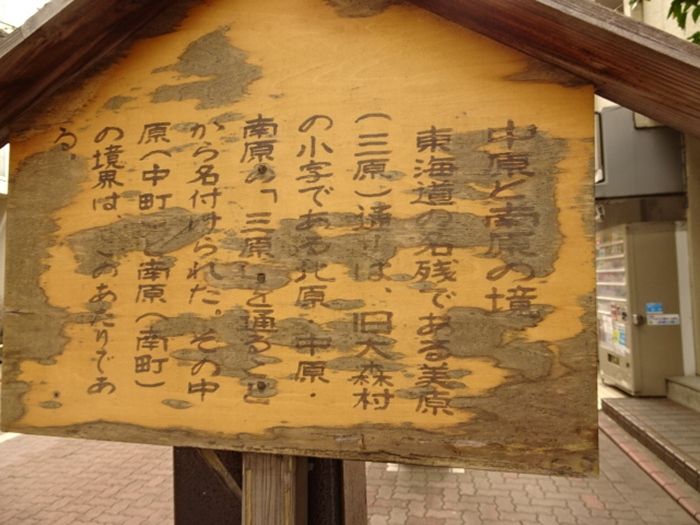 中原と南原の境
東海道の名残である美原
(三原)通りは、旧大森村
の小字である北原・中原・
南原の「三原」を通ること
から名付けられた。その中
原(中町)と南原(南町)
の境界は、このあたりであ
る。